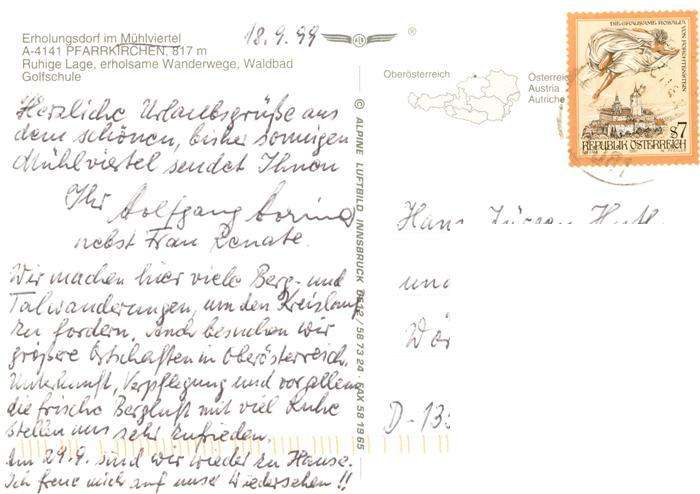 Erholungsdorf im Mühlviertel
A-4141 PFARRKIRCHEN, 817 m
Ruhige Lage, erholsame Wanderwege, Waldbad
Golfschule
18.9.99
®
Herzliche Urlaubsgrüße aus
dem schönen, bisher sonnigen
Mühlviertel sendet Ihnen
Ihr Wolfgang
nebst Frau Renate.
Wir machen hier viele Berg- und
Talwanderungen, um den Kreislauf
zu fördern. Auch besuchen wir
größere Ortschaften in Oberösterreich.
Unterkunft, Verpflegung und vor allem
die frische Bergluft mit viel Ruhe
stellen uns sehr zufrieden.
Am 29.9. sind wir wieder zu Hause.
Ich freue mich auf unser Wiedersehen!!
© ALPINE LUFTBILD INNSBRUCK 0512/58 73 24 · FAX 58 19 65
Oberösterreich
Österreich
Austria
Autriche
DIE GRAUSAME ROSALIA
VON FORCHTENSTEIN
S7
REPUBLIK ÖSTERREICH
Hans Jürgen
und
D-13